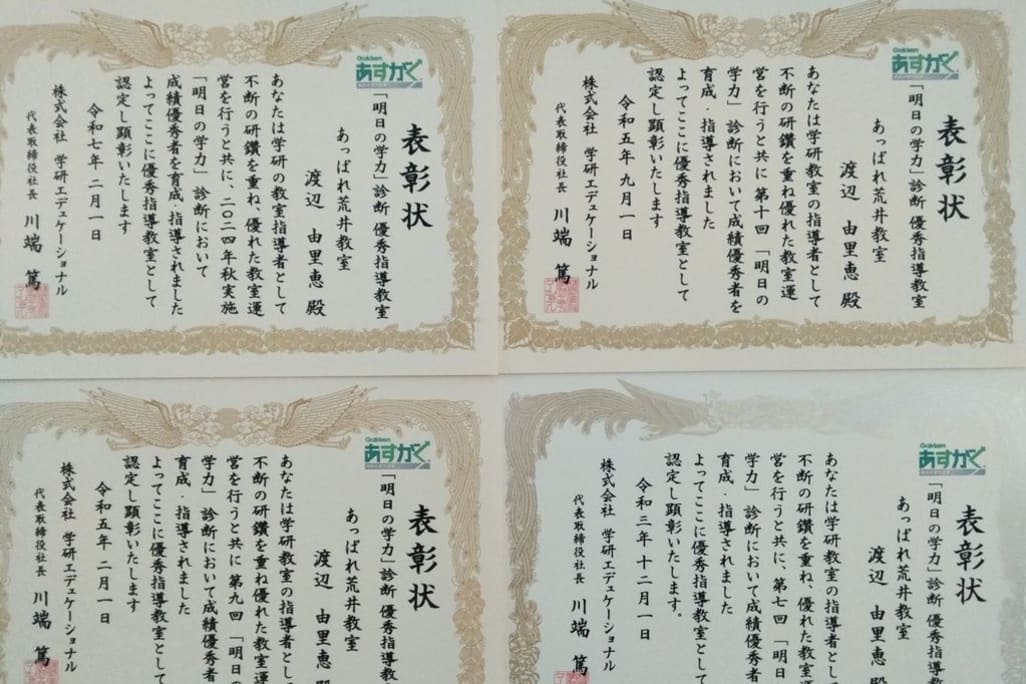 Gakken
あすがく
表彰状
「明日の学力」診断 優秀指導教室
あっぱれ荒井教室
渡辺 由里恵 殿
あなたは学研の教室指導者として
不断の研鑽を重ね、優れた教室運
営を行うと共に、二〇二四年秋実施
「明日の学力」診断において
成績優秀者を育成・指導されました
よってここに優秀指導教室として
認定し顕彰いたします
令和七年 二月一日
株式会社 学研エデュケーショナル
代表取締役社長 川端 篤
Gakken
あすがく
表彰状
「明日の学力」診断 優秀指導教室
あっぱれ荒井教室
渡辺 由里恵 殿
あなたは学研教室の指導者として
不断の研鑽を重ね優れた教室運
営を行うと共に 第十回 「明日の
学力」診断において成績優秀者を
育成・指導されました
よってここに優秀指導教室として
認定し顕彰いたします
令和五年 九月一日
株式会社 学研エデュケーショナル
代表取締役社長 川端 篤
Gakken
あすがく
表彰状
「明日の学力」診断 優秀指導教
あっぱれ荒井教室
渡辺 由里恵
あなたは学研教室の指導者とし
不断の研鑽を重ね優れた教室運
営を行うと共に 第九回 「明日
学力」診断において成績優秀者
育成・指導されました
よってここに優秀指導教室として
認定し顕彰いたします
令和五年 二月一日
株式会社 学研エデュケーショナル
代表取締役社長 川端 篤
Gakken
あすがく
表彰状
「明日の学力」診断 優秀指導教
あっぱれ荒井教室
渡辺 由里恵
あなたは学研教室の指導者とし
不断の研鑽を重ね、優れた教室
営を行うと共に、第七回 「明日
学力」診断において成績優秀
育成・指導されました
よってここに優秀指導教室とし
認定し顕彰いたします。
令和三年十二月一日
株式会社 学研エデュケーショナル
代表取締役社長 川端 篤